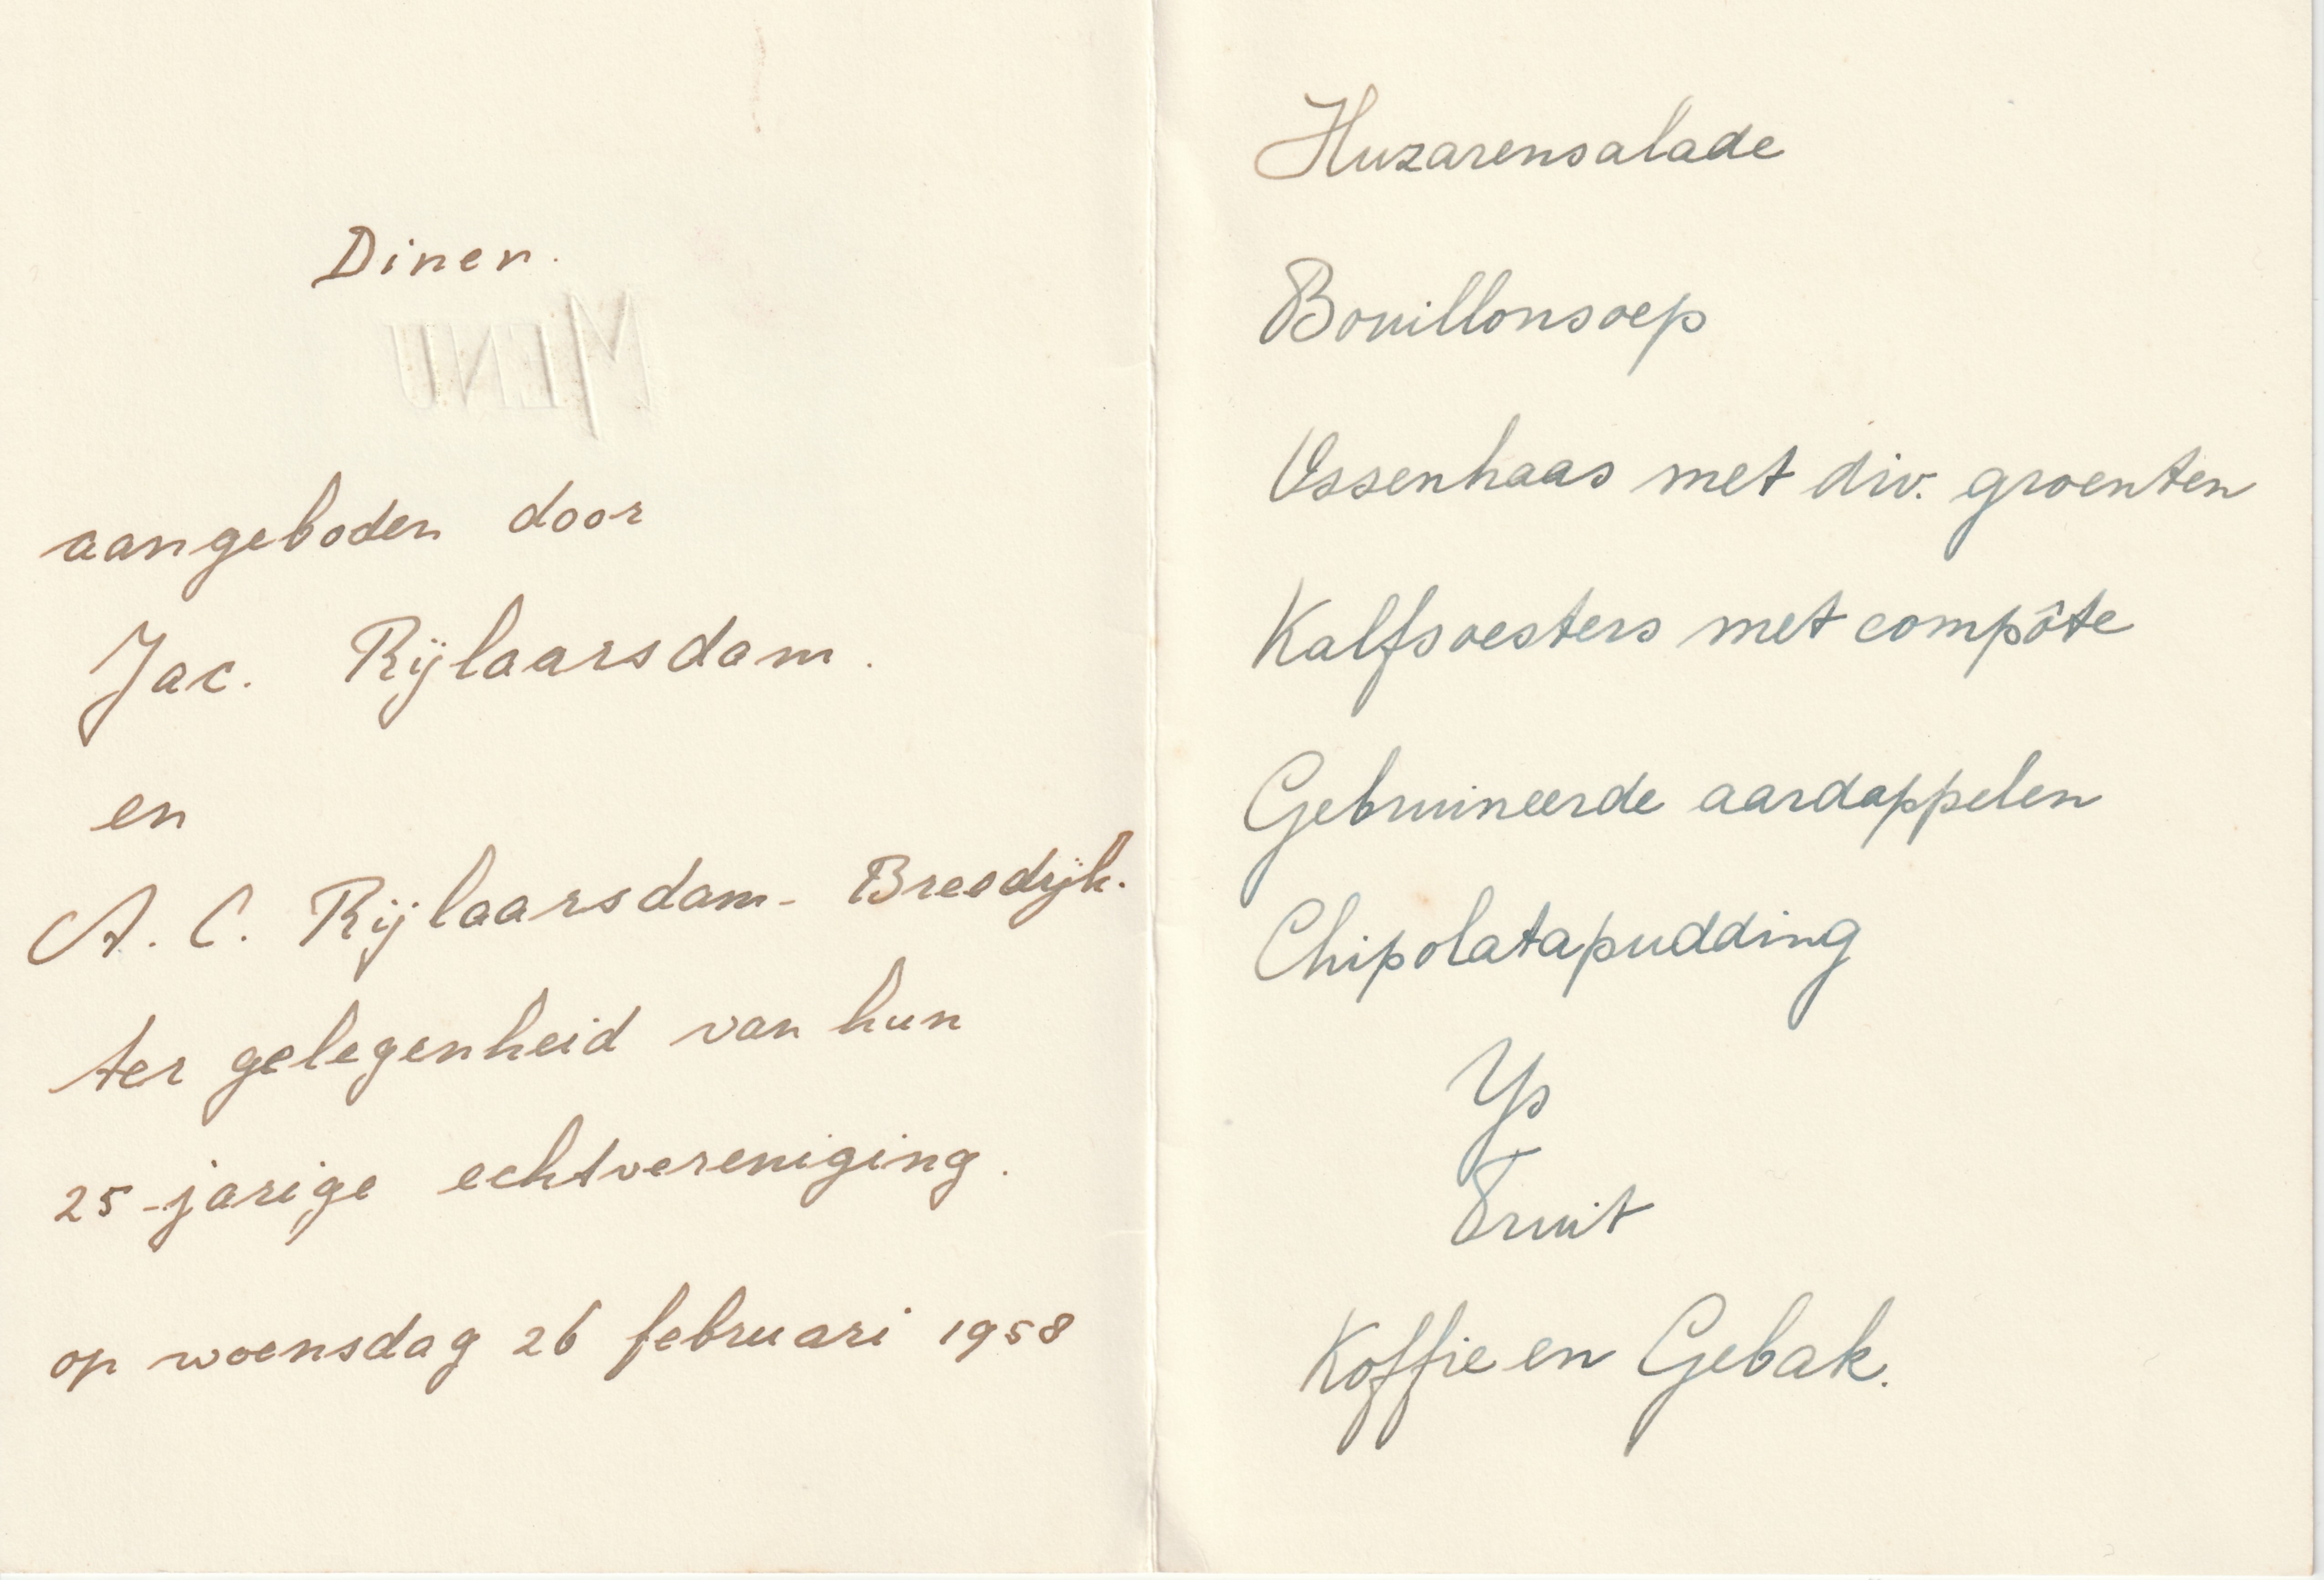 Diner.
MENU
aangeboden door
Jac. Rijlaarsdam.
en
A. C. Rijlaarsdam - Breedijk.
ter gelegenheid van hun
25-jarige echtvereniging.
op woensdag 26 februari 1958
Huzarensalade
Bouillonsoep
Ossenhaas met div. groenten
Kalfsoesters met compôte
Gebruineerde aardappelen
Chipolatapudding
Ys
Fruit
Koffie en Gebak.